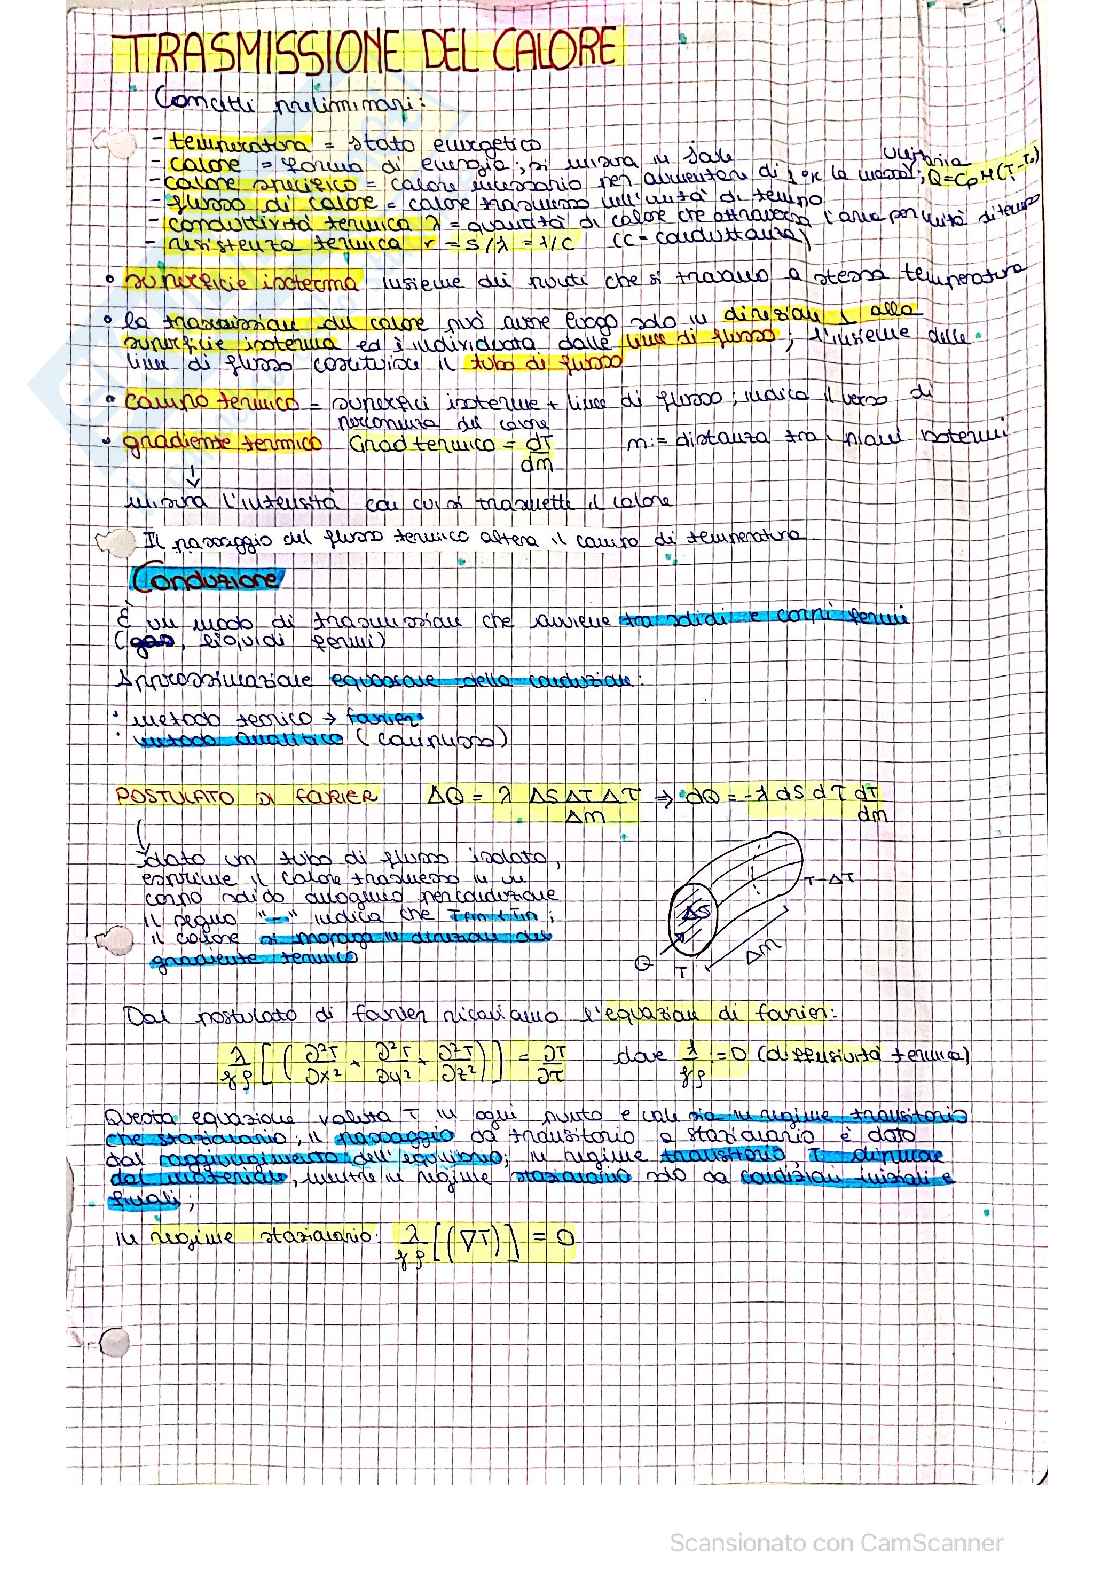 TRASMISSIONE DEL CALORE
Concetti preliminari:
- temperatura = stato energetico
- calore = forma di energia; si misura in Joule
- calore specifico = calore necessario per aumentare di 1°K la massa unitaria; Q = Cp M (T-T₀)
- flusso di calore = calore trasmesso nell'unità di tempo
- conduttività termica λ = quantità di calore che attraversa l'area per unità di tempo
- resistenza termica r = s/λ = 1/C (C = conduttanza)
• superficie isoterma insieme dei punti che si trovano a stessa temperatura
• la trasmissione del calore può avere luogo solo in direzione ⊥ alla
superficie isoterma ed è individuata dalle linee di flusso, l'insieme delle
linee di flusso costituisce il tubo di flusso
• campo termico = superfici isoterme + linee di flusso; indica il verso di
percorrenza del calore
• gradiente termico Grad termico = dT/dm m = distanza tra i piani isotermi
↓
misura l'intensità con cui si trasmette il calore
Il passaggio del flusso termico altera il campo di temperatura
Conduzione
È un modo di trasmissione che avviene tra solidi e corpi fermi
(gas, liquidi fermi)
Approssimazione equazione della conduzione:
• metodo teorico → fourier
• metodo analitico (
POSTULATO DI FOURIER ΔQ = λ ΔS ΔT Δτ / Δm → dQ = -λ dS dτ dT/dm
dato un tubo di flusso isolato,
esprime il calore trasmesso in un
corpo solido omogeneo per conduzione
il segno "-" indica che Tfin < Tin;
il calore si propaga in direzione del
gradiente termico
ΔS
T-ΔT
Δm
Q
T
Dal postulato di fourier ricaviamo l'equazione di fourier:
λ/γρ [(∂²T/∂x² + ∂²T/∂y² + ∂²T/∂z²)] = ∂T/∂τ dove λ/γρ = 0 (diffusività termica)
Questa equazione valuta T in ogni punto e vale sia in regime transitorio
che stazionario, il passaggio da transitorio a stazionario è dato
dal raggiungimento dell'equilibrio; in regime transitorio, T dipende
dal materiale, mentre in regime stazionario solo da condizioni iniziali e
finali;
in regime stazionario: λ/γρ [(∇T)] = 0
Scansionato con CamScanner